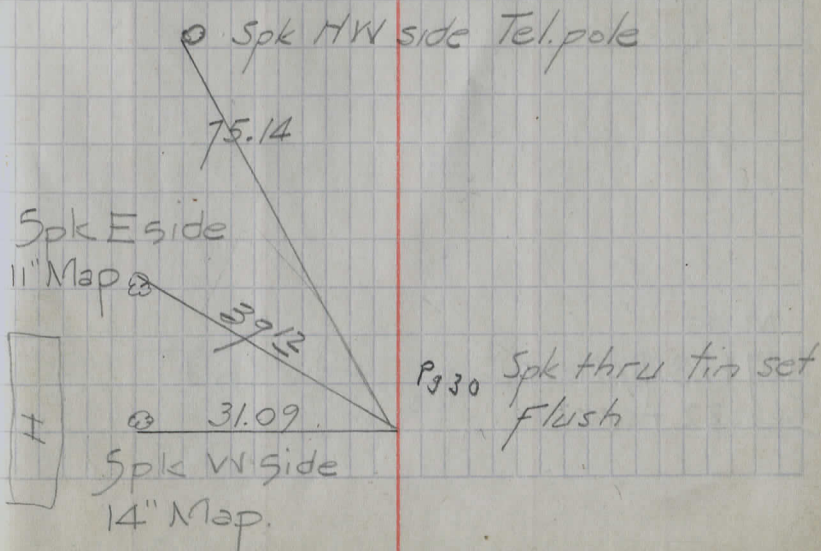 Spk NW side Tel. pole
75.14
Spk E side
11" Map
39.12
Pg 30 Spk thru tin set
Flush
31.09
Spk W side
14" Map.